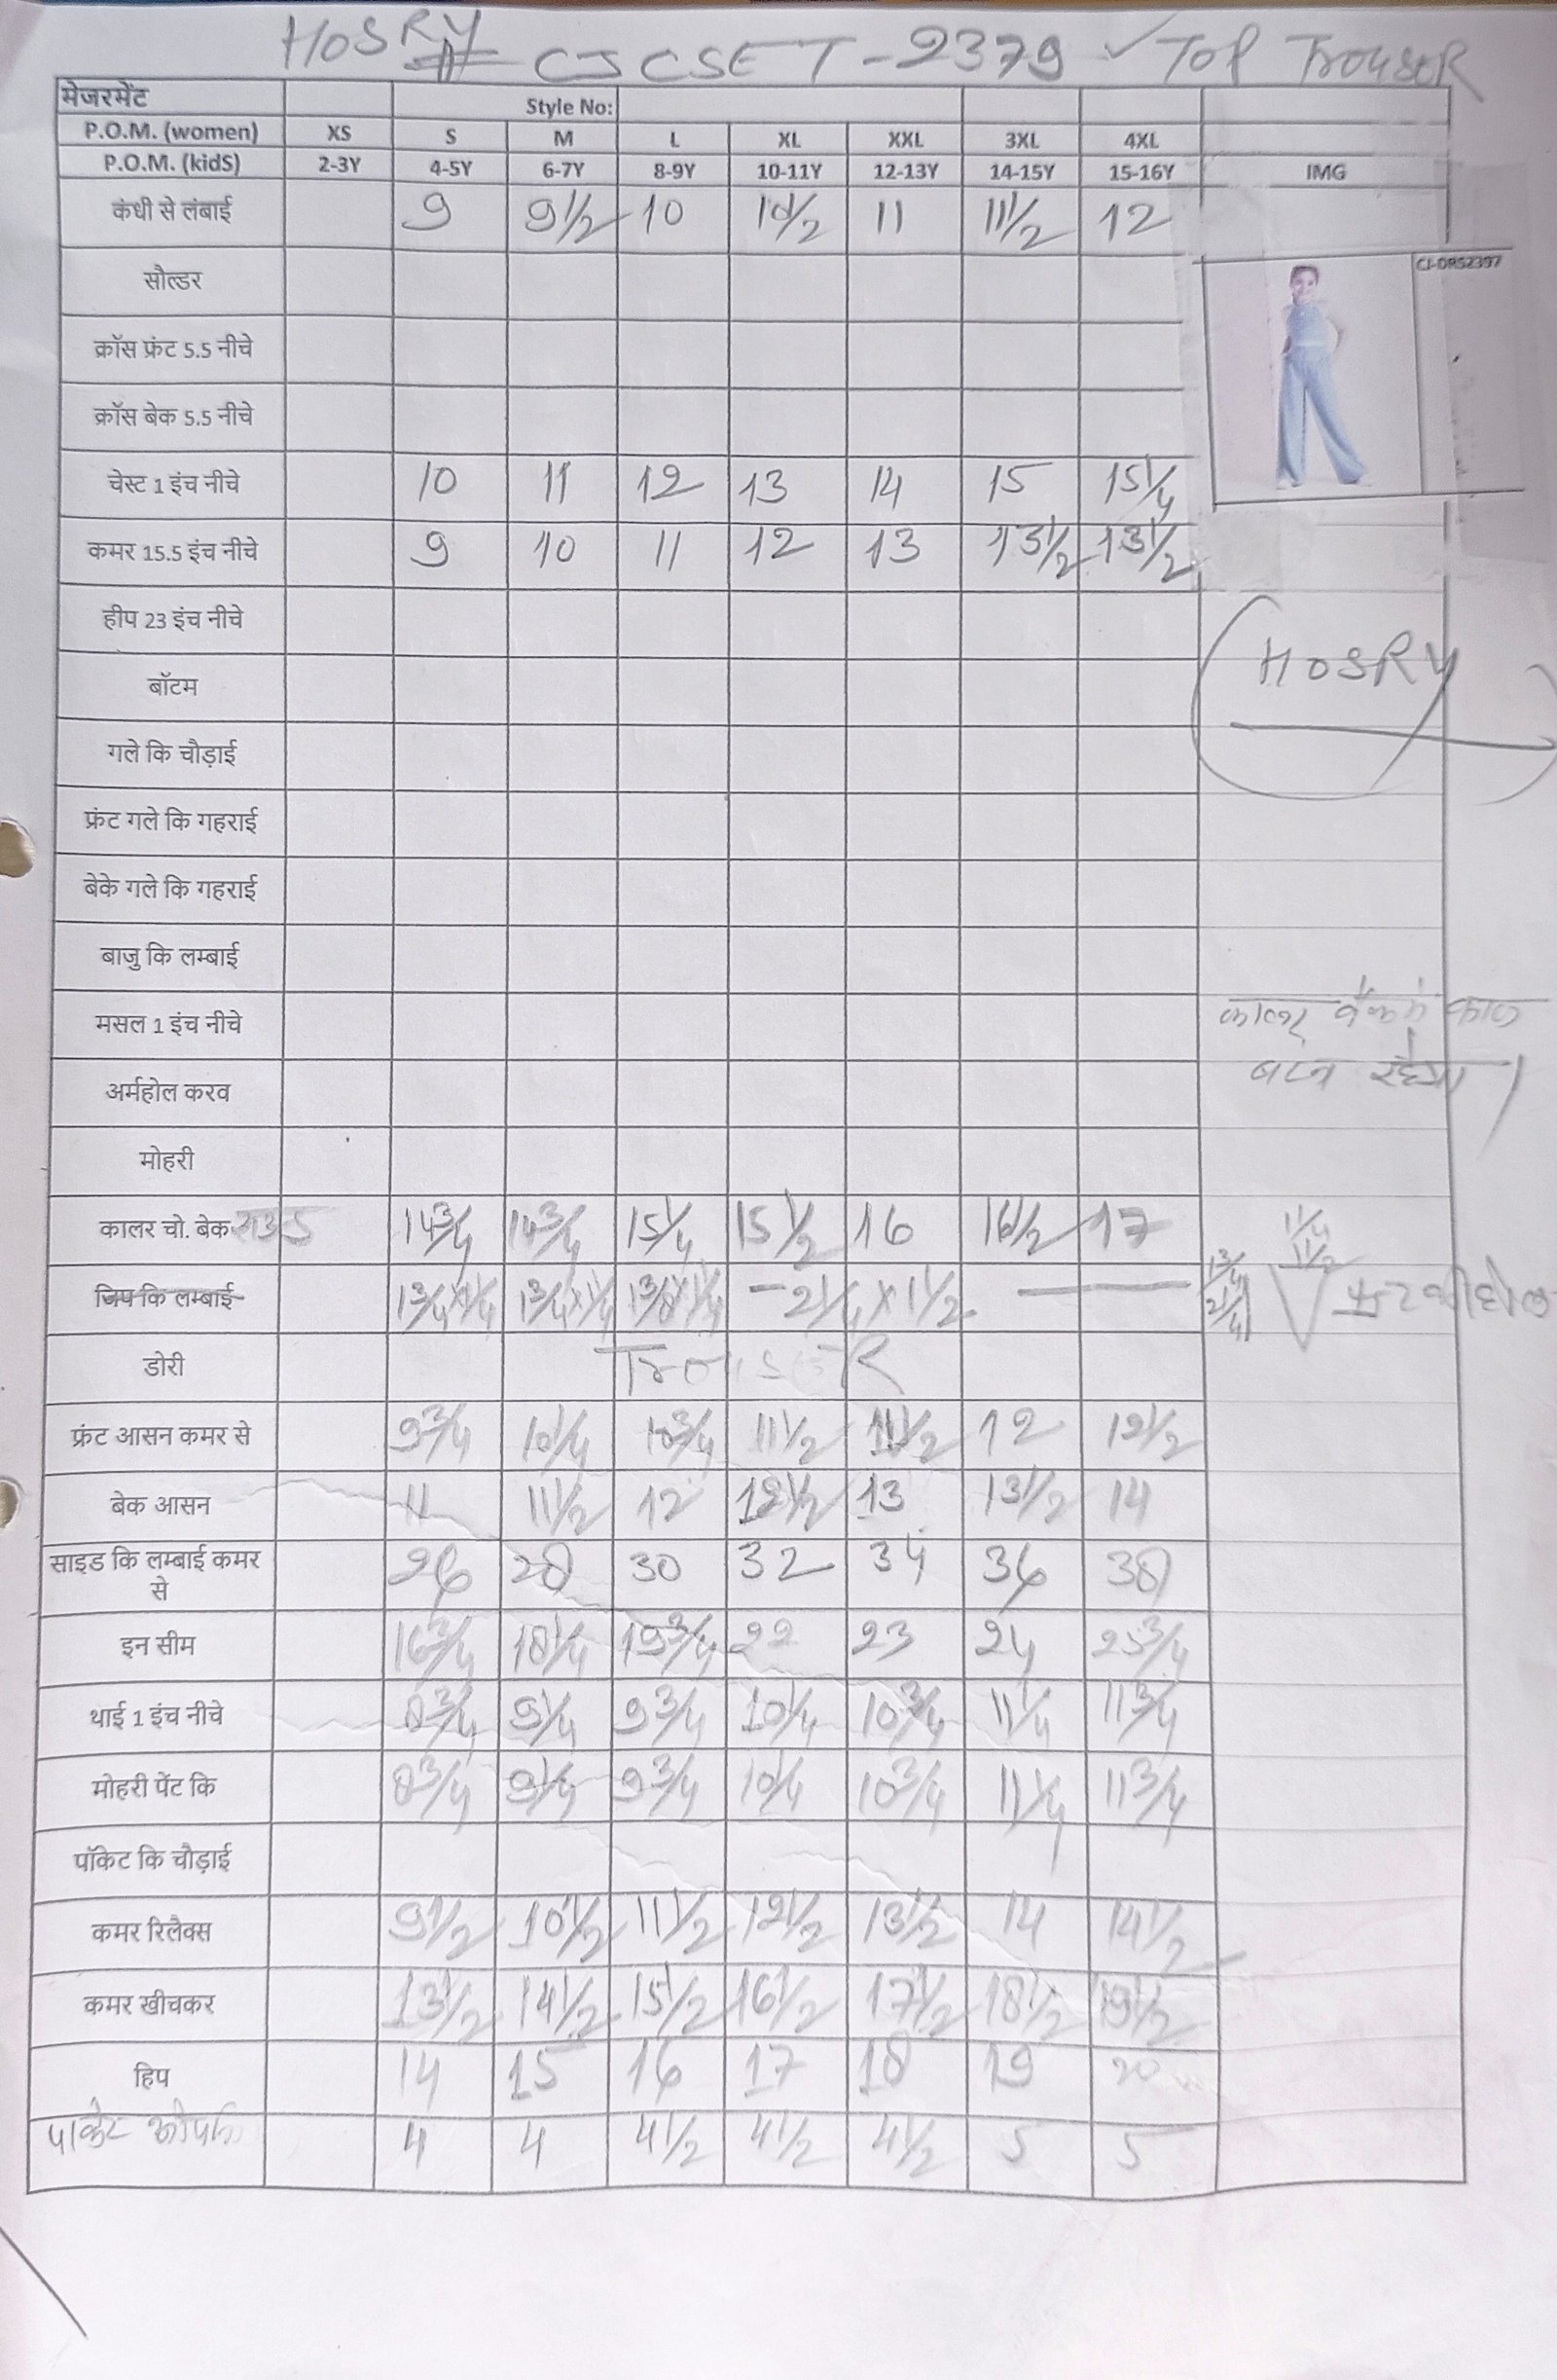 HOSRY CJCSET-2379 ✓ Top Trouser
मेजरमेंट Style No:
P.O.M. (women) XS S M L XL XXL 3XL 4XL
P.O.M. (kidS) 2-3Y 4-5Y 6-7Y 8-9Y 10-11Y 12-13Y 14-15Y 15-16Y IMG
कंधी से लंबाई 9 9½ 10 10½ 11 11½ 12
सौल्डर
CJ-DRS2397
क्रॉस फ्रंट 5.5 नीचे
क्रॉस बेक 5.5 नीचे
चेस्ट 1 इंच नीचे 10 11 12 13 14 15 15¼
कमर 15.5 इंच नीचे 9 10 11 12 13 13½ 13½
हीप 23 इंच नीचे
HOSRY
बॉटम
गले कि चौड़ाई
फ्रंट गले कि गहराई
बेके गले कि गहराई
बाजु कि लम्बाई
मसल 1 इंच नीचे
कालर बैक में काज
बटन रहेगा।
अर्महोल करव
मोहरी
कालर चो. बेक राउंड 14¾ 14¾ 15¼ 15½ 16 16½ 17
1¼ 1½
जिप कि लम्बाई 1¾x1¼ 1¾x1¼ 1¾x1¼ — 2¼x1½ —
1¾ 2¼
डोरी TrousER
फ्रंट आसन कमर से 9¾ 10¼ 10¾ 11½ 11½ 12 12½
बेक आसन 11 11½ 12 12½ 13 13½ 14
साइड कि लम्बाई कमर से 26 28 30 32 34 36 38
इन सीम 16¾ 18¼ 19¾ 22 23 24 25¾
थाई 1 इंच नीचे 8¾ 9¼ 9¾ 10¼ 10¾ 11¼ 11¾
मोहरी पेंट कि 8¾ 9¼ 9¾ 10¼ 10¾ 11¼ 11¾
पॉकेट कि चौड़ाई
कमर रिलैक्स 9½ 10½ 11½ 12½ 13½ 14 14½
कमर खीचकर 13½ 14½ 15½ 16½ 17½ 18½ 19½
हिप 14 15 16 17 18 19 20
पाकेट ओपनिं 4 4 4½ 4½ 4½ 5 5